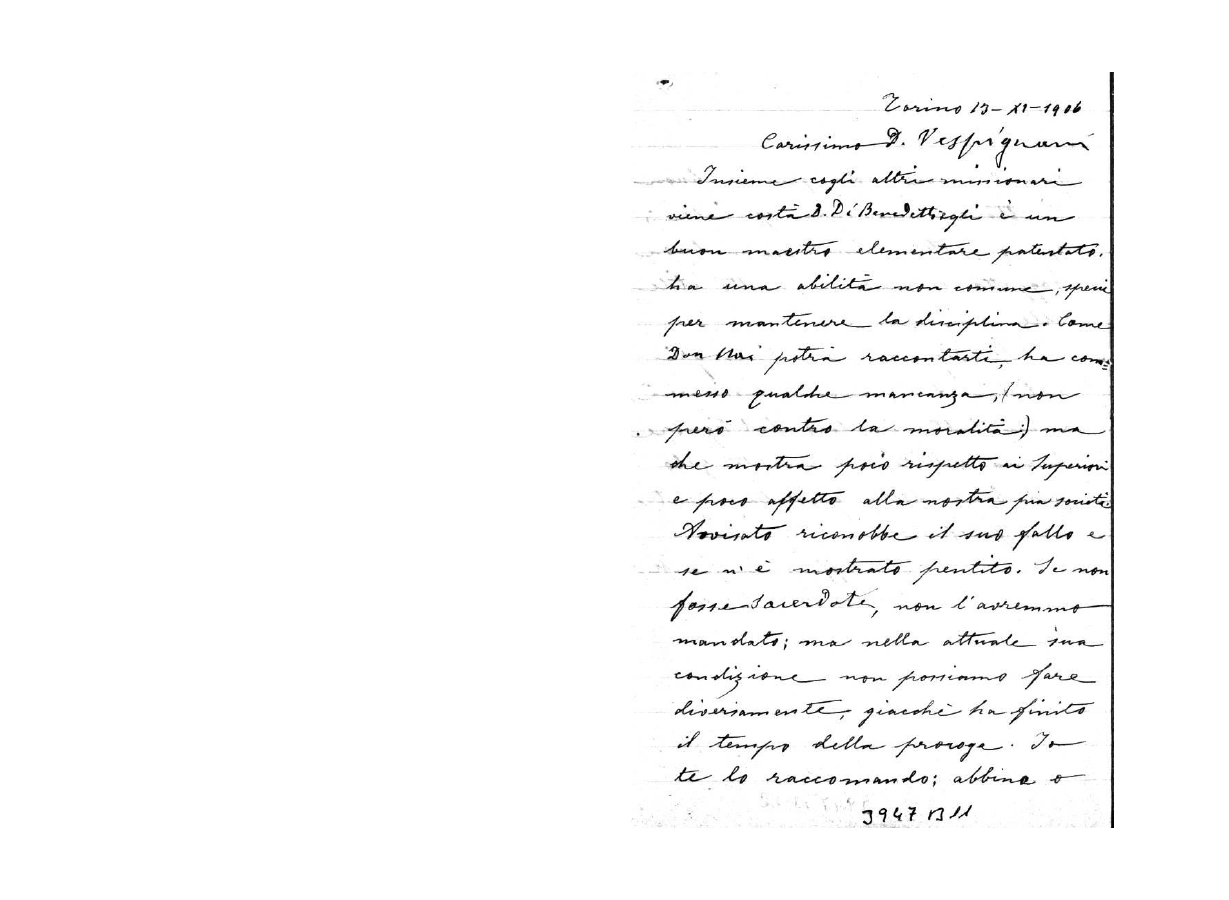 Torino 13-XI-1906
Carissimo D. Vespignani
Insieme cogli altri missionari
viene costà D. Di Benedetto; egli è un
buon maestro elementare patentato.
ha una abilità non comune, specie
per mantenere la disciplina. Come
Don potrà raccontarti, ha com=
messo qualche mancanza, (non
però contro la moralità;) ma
che mostra poco rispetto ai Superiori
e poco affetto alla nostra pia società.
Avvisato riconobbe il suo fallo e
se n'è mostrato pentito. Se non
fosse Sacerdote, non l'avremmo
mandato; ma nella attuale sua
condizione non possiamo fare
diversamente, giacchè ha finito
il tempo della proroga. Io
te lo raccomando; abbine o
3947 B11